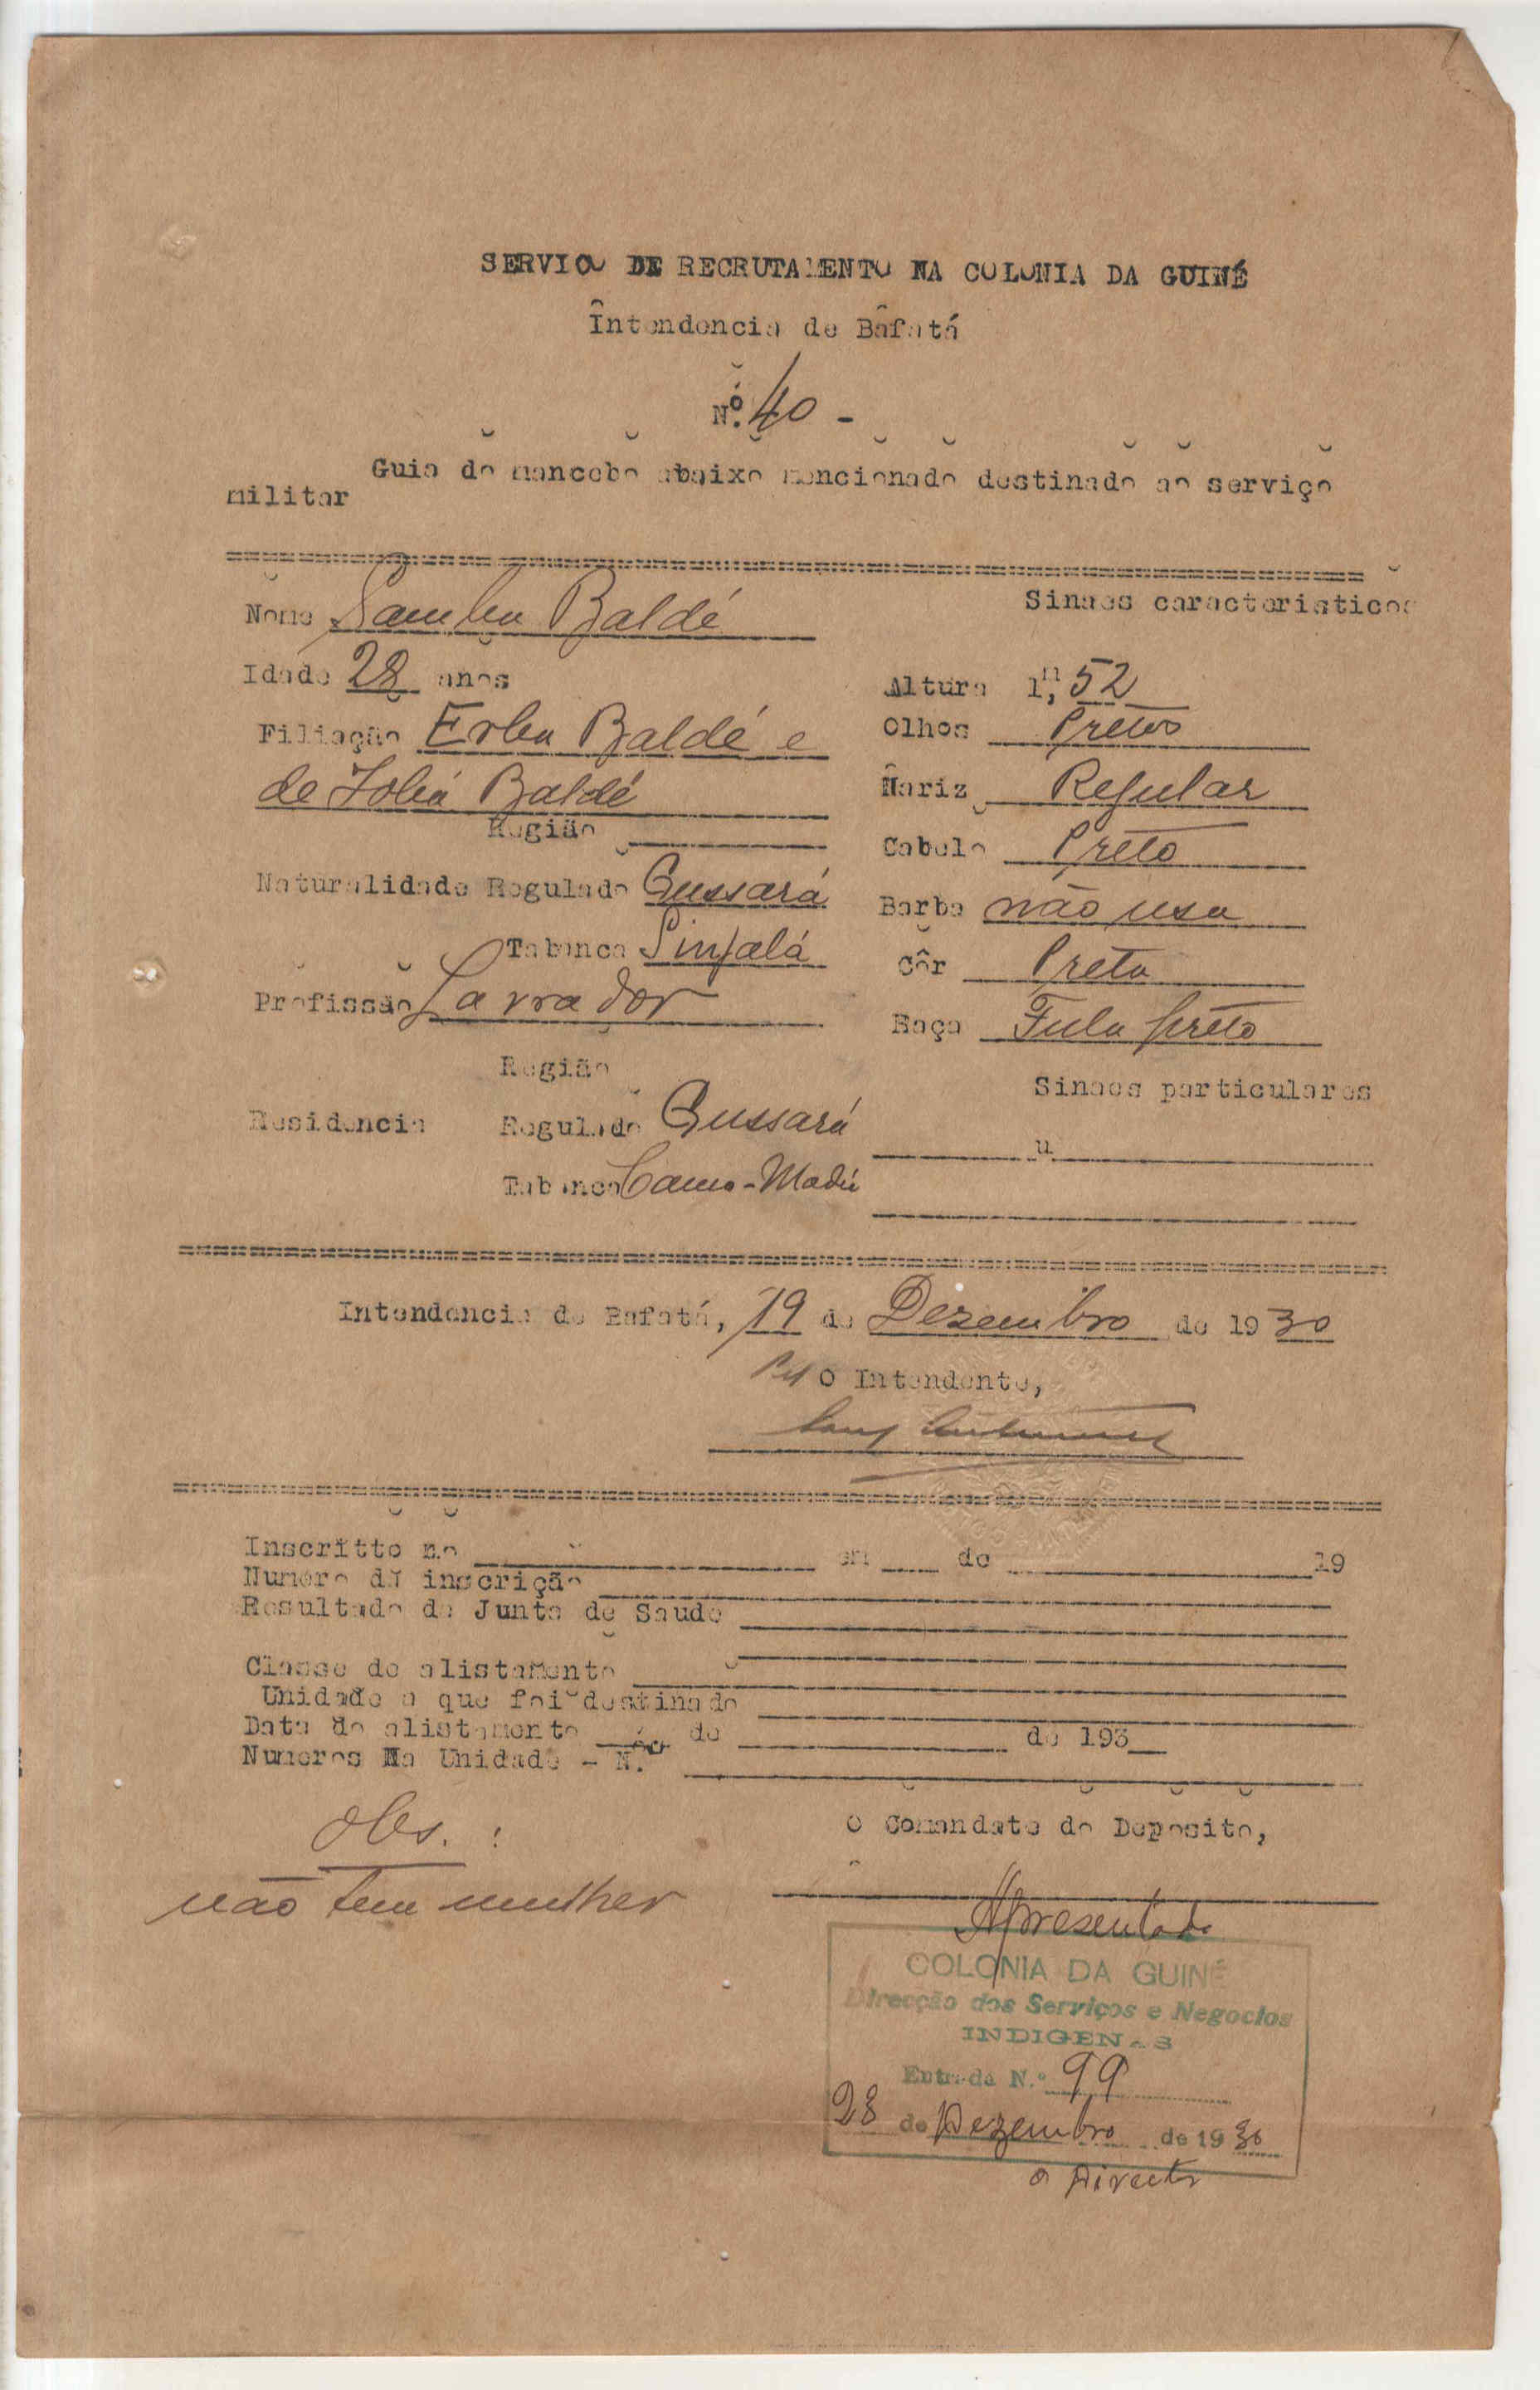 SERVIÇO DE RECRUTAMENTO NA COLONIA DA GUINÉ
Intendencia de Bafatá
Nº. 40 -
Guia do mancebo abaixo mencionado destinado ao serviço
militar
Nome Samba Baldé
Sinaes caracteristicos
Idade 28 anos
Altura 1,m 52
Filiação Erba Baldé e
Olhos Pretos
de Jobá Baldé
Nariz Regular
Região
Cabelo Preto
Naturalidade Regulado Cussará
Barba não usa
Tabanca Sinfalá
Côr Preta
Profissão Lavrador
Raça Fula preto
Região
Sinaes particulares
Residencia Regulado Cussará
"
Tabanca Camo-Madú
Intendencia de Bafatá, 19 de Dezembro de 1930
Pel O Intendente,
Inscritto no em de 19
Numero da inscrição
Resultado da Junta de Saude
Classe do alistamento
Unidade a que foi destinado
Data do alistamento de de 193
Numeros Na Unidade - N.º
Obs. :
O Comandate do Deposito,
não tem mulher
Apresentado
COLONIA DA GUINÉ
Direcção dos Serviços e Negocios
INDIGENAS
Entrada N.º 99
28 de Dezembro de 1930
O Director